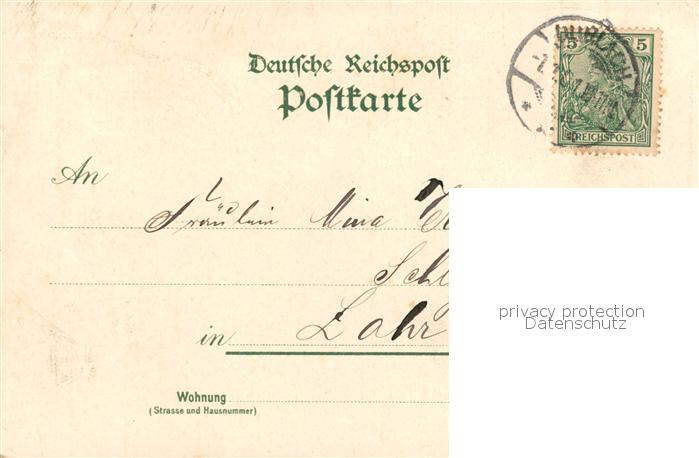 Deutsche Reichspost
Postkarte
5 5
REICHSPOST
An
Fräulein Mina
Lahr
in
privacy protection
Datenschutz
Wohnung
(Strasse und Hausnummer)